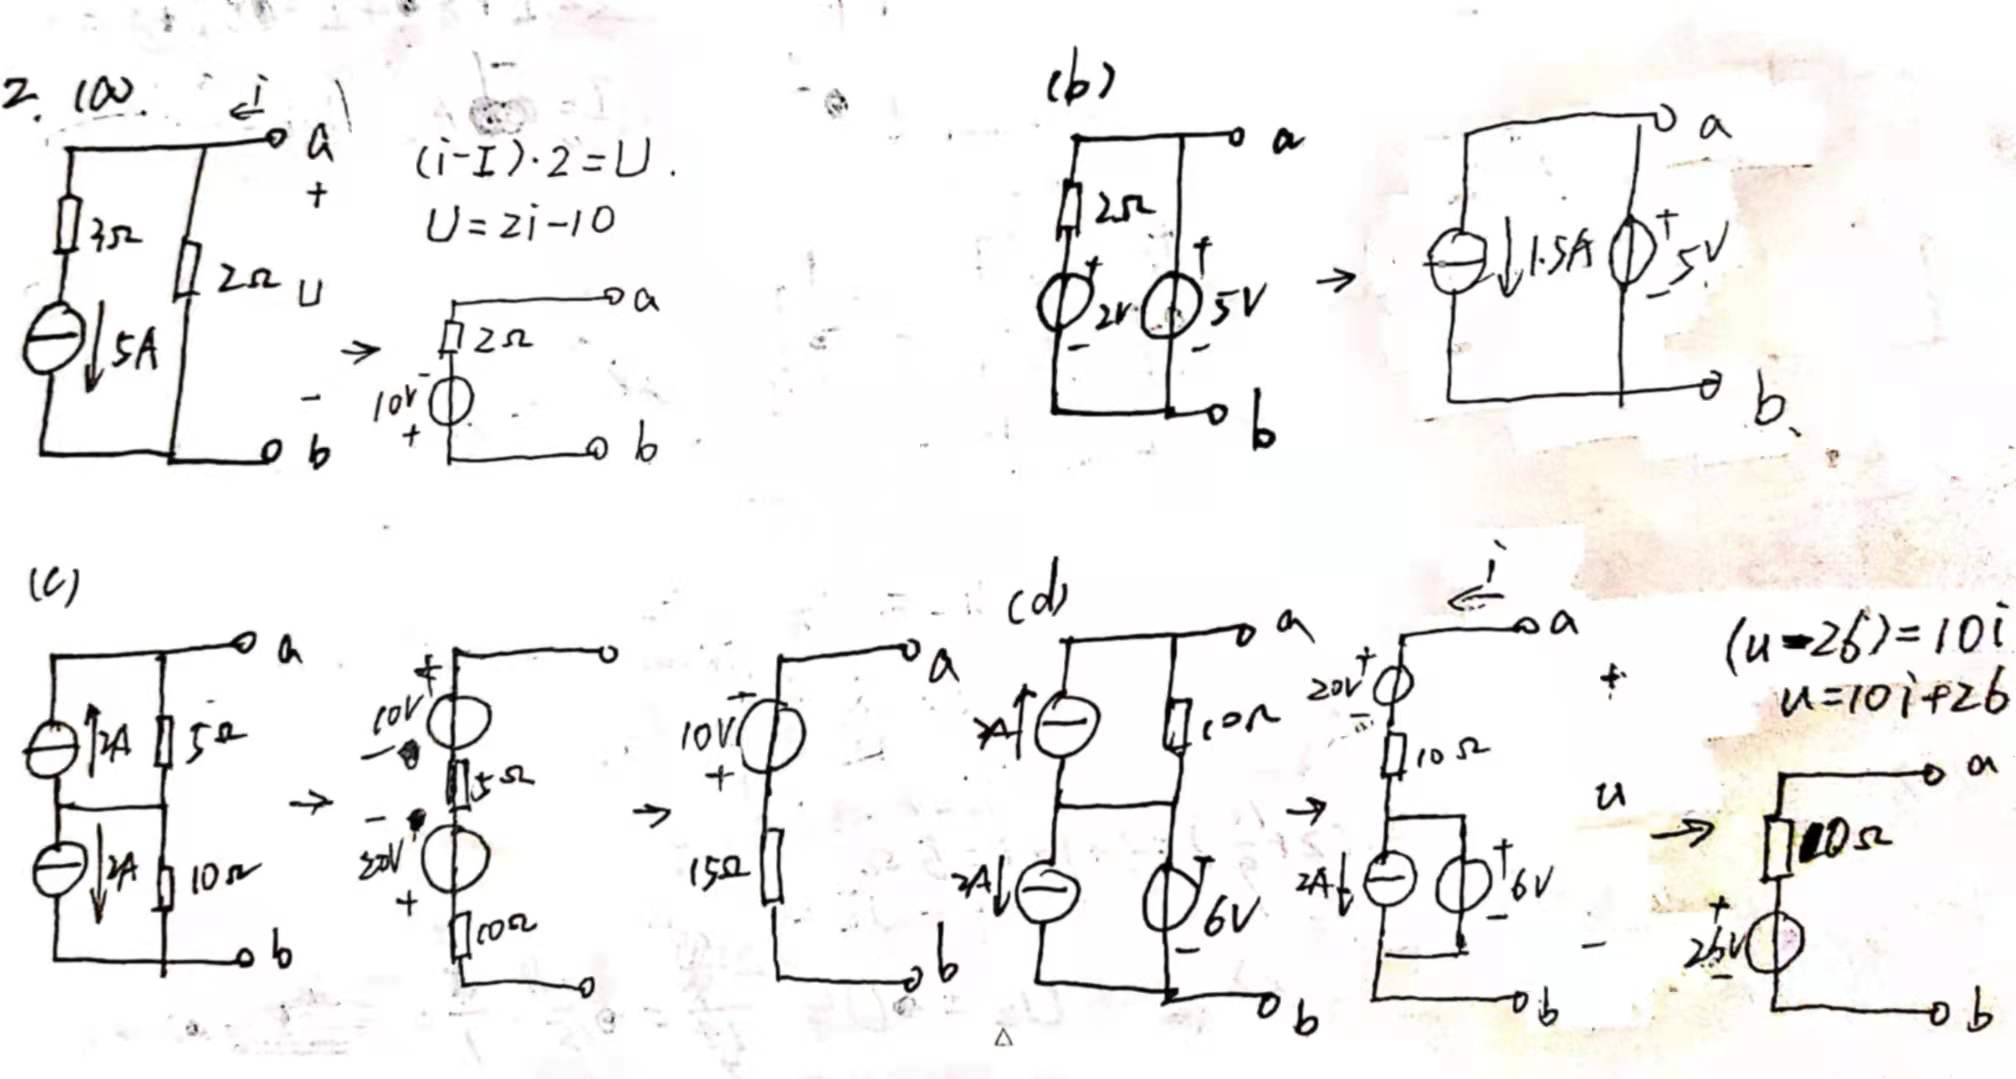 2. (a).
i
a
+
3Ω
2Ω
U
5A
-
b
(i-I)·2=U.
U=2i-10
→
a
2Ω
10V
-
+
b
(b)
a
2Ω
+
2V
-
+
5V
-
b
→
a
1.5A
+
5V
-
b.
(c)
a
2A
5Ω
2A
10Ω
b
→
+
10V
-
5Ω
-
20V
+
10Ω
→
a
10V
+
15Ω
b
(d)
a
2A
10Ω
2A
+
6V
-
b
→
i
a
+
20V
-
10Ω
2A
+
6V
-
+
u
-
b
(u-26)=10i
u=10i+26
→
a
10Ω
+
26V
-
b